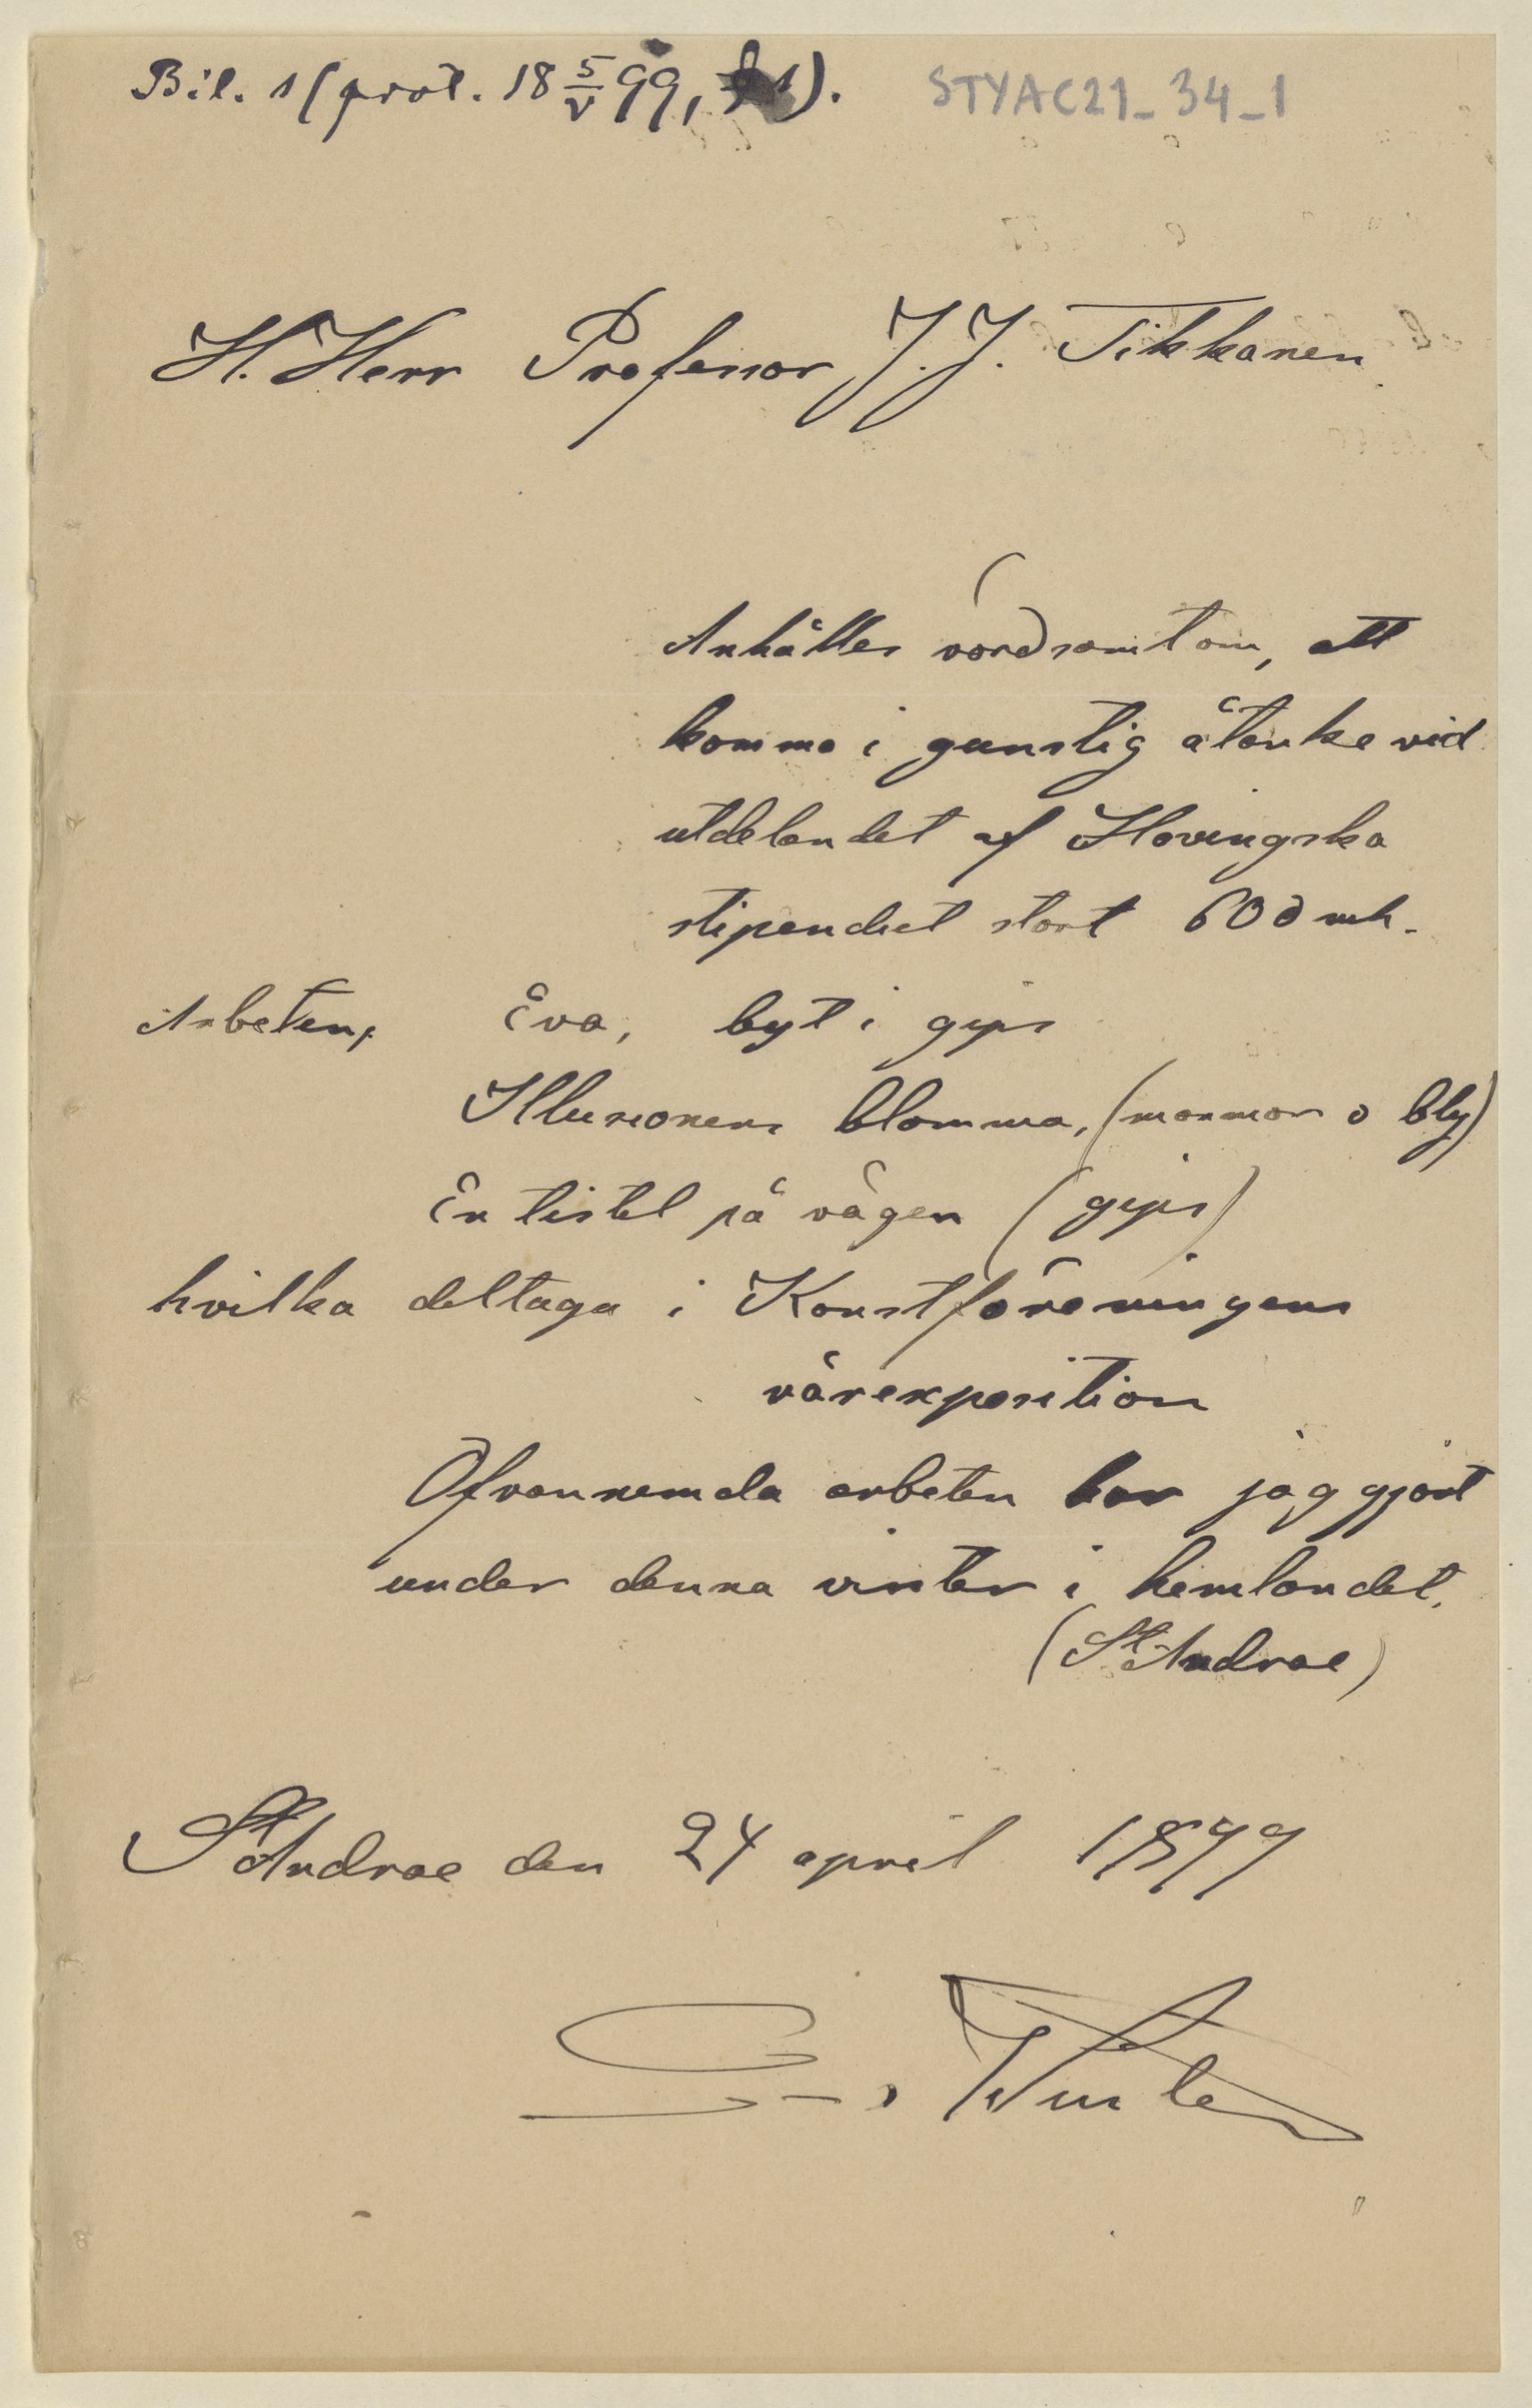 Bil. 1 (prot. 18 5/V 99, § 1).
STYAC21_34_1
H. Herr Professor J.J. Tikkanen
Anhålles vördsamt om, att
komma i gunstig åtanke vid
utdelandet af Hovingska
stipendiet stort 600 mk.
Arbeten, Eva, byst i gips
Illusionens blomma, (marmor o bly)
En tistel på vägen (gips)
hvilka deltaga i Konstföreningens
vårexposition
Ofvannemda arbeten har jag gjort
under denna vinter i hemlandet.
(St Andrae)
St Andrae den 24 april 1899
Winter